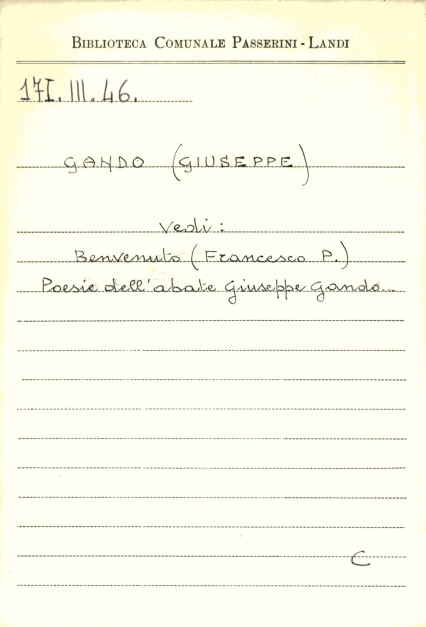 BIBLIOTECA COMUNALE PASSERINI - LANDI
17I. III. 46.
GANDO (GIUSEPPE)
Vedi:
Benvenuto (Francesco P.)
Poesie dell'abate Giuseppe Gando...
C